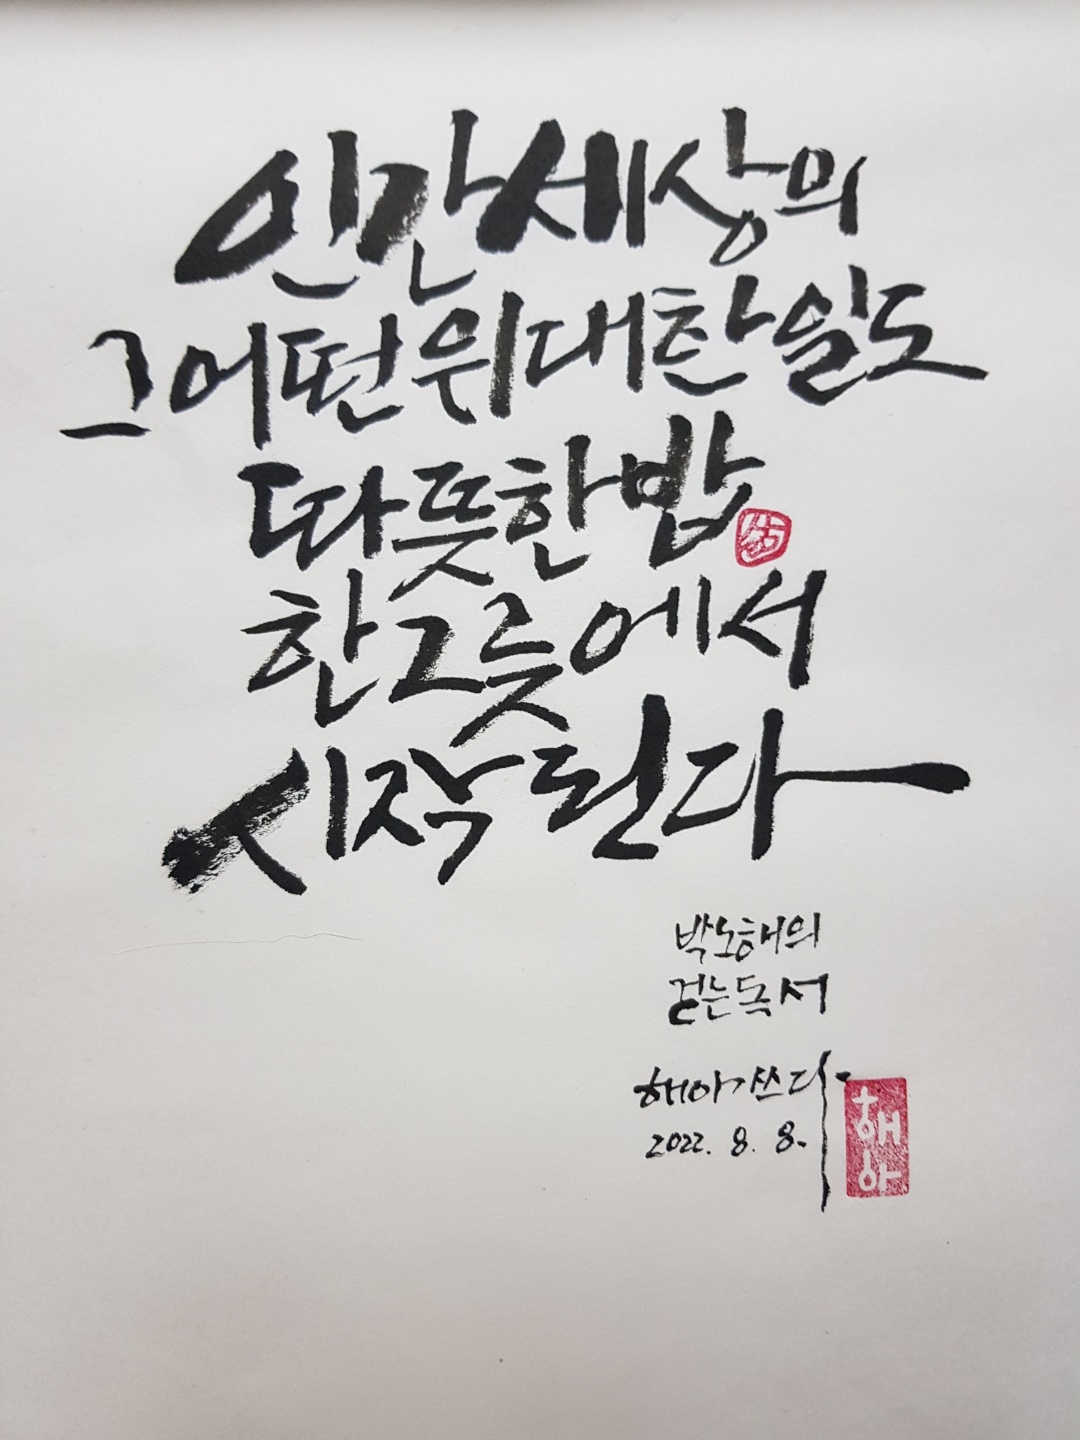 인간세상의
그어떤위대한일도
따뜻한밥
한그릇에서
시작된다
박노해의
걷는독서
해아가쓰다
2022. 8. 8.
해아